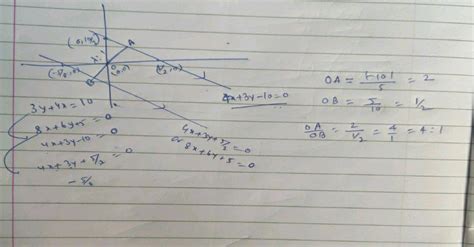 (0,10/3)
A
(-5/8,0)
O
(0,0)
(5/2,0)
B
4x+3y-10=0
3y+4x=10
8x+6y+5=0
4x+3y-10=0
4x+3y+5/2=0
-5/2
4x+3y+5/2=0
or
8x+6y+5=0
OA = |-10|/5 = 2
OB = 5/10 = 1/2
OA/OB = 2/1/2 = 4/1 = 4:1